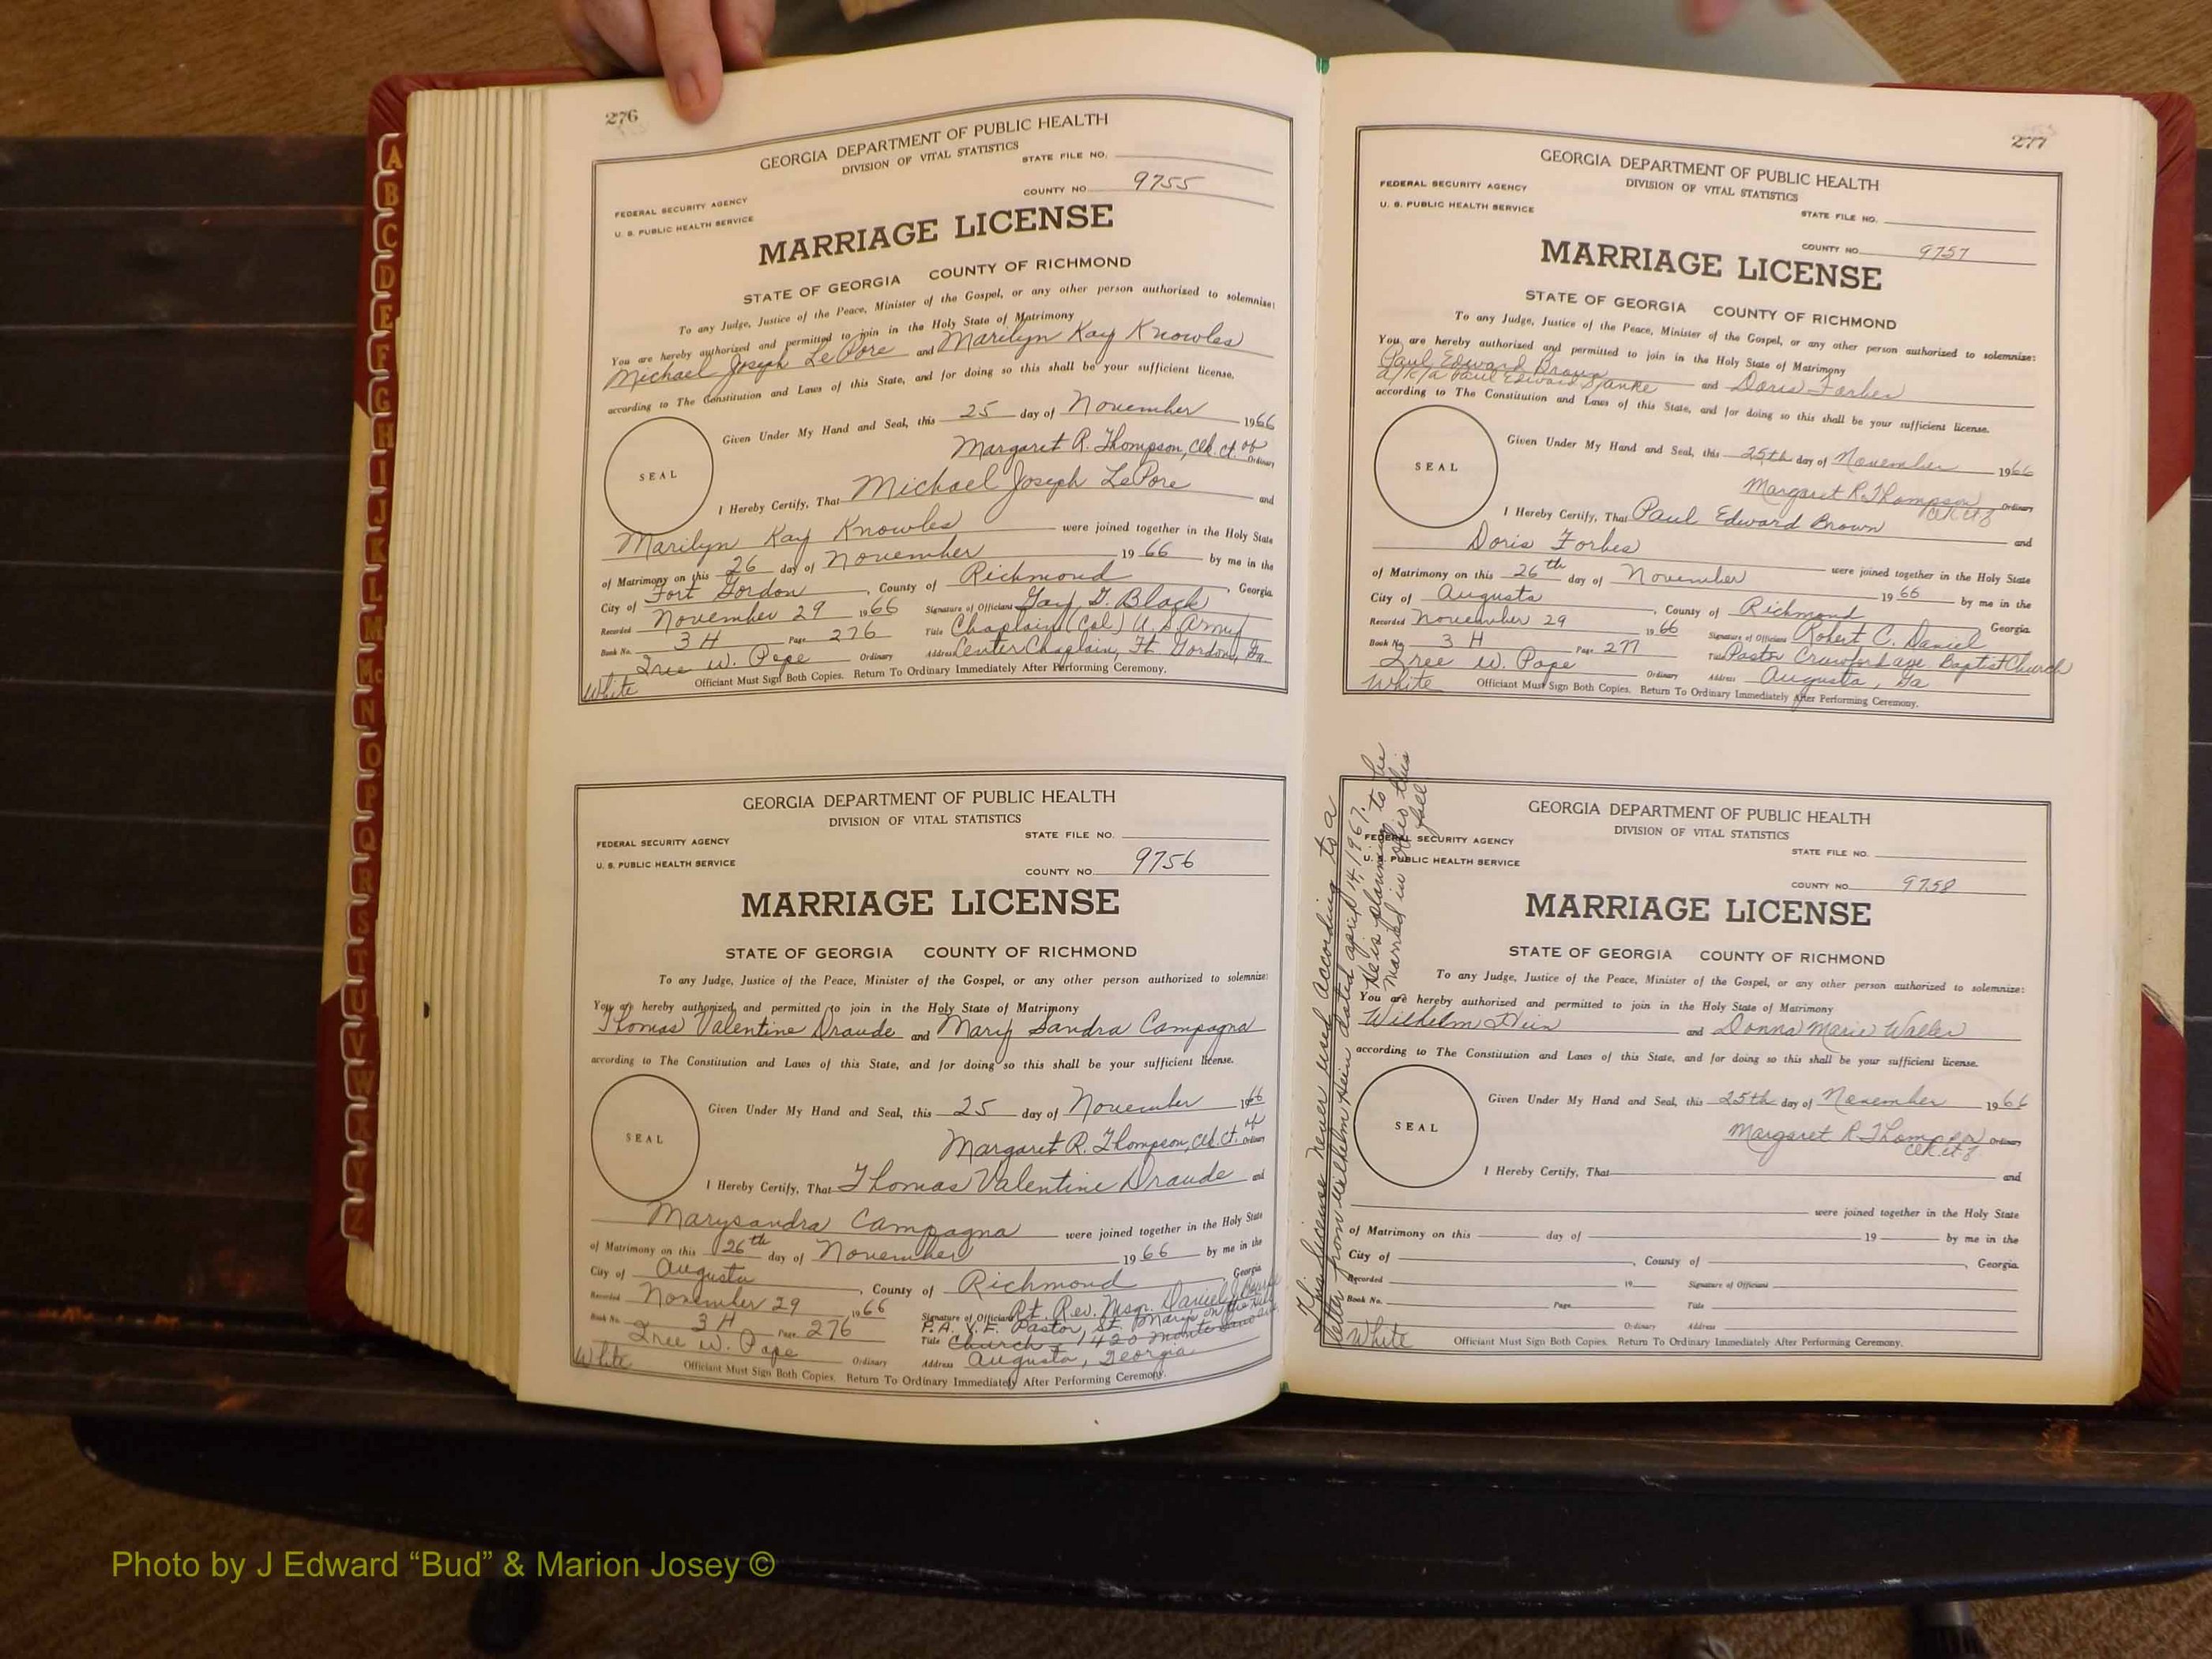 A
B
C
D
E
F
G
H
I
J
K
L
M
Mc
N
O
P
Q
R
S
T
U
V
W
X
Y
Z
276
GEORGIA DEPARTMENT OF PUBLIC HEALTH
DIVISION OF VITAL STATISTICS
STATE FILE NO.
COUNTY NO. 9755
FEDERAL SECURITY AGENCY
U. S. PUBLIC HEALTH SERVICE
MARRIAGE LICENSE
STATE OF GEORGIA COUNTY OF RICHMOND
To any Judge, Justice of the Peace, Minister of the Gospel, or any other person authorized to solemnize:
You are hereby authorized and permitted to join in the Holy State of Matrimony
Michael Joseph LePore and Marilyn Kay Knowles
according to The Constitution and Laws of this State, and for doing so this shall be your sufficient license.
Given Under My Hand and Seal, this 25 day of November 1966
Margaret R. Thompson, Clk. Ct. of Ordinary
SEAL
I Hereby Certify, That Michael Joseph LePore and
Marilyn Kay Knowles were joined together in the Holy State
of Matrimony on this 26 day of November 1966 by me in the
City of Fort Gordon, County of Richmond, Georgia.
Recorded November 29 1966 Signature of Officiant Gay G. Black
Book No. 3 H Page 276 Title Chaplain (Col) U.S. Army
Iree W. Pope Ordinary Address Center Chaplain, Ft. Gordon, Ga
White Officiant Must Sign Both Copies. Return To Ordinary Immediately After Performing Ceremony.
GEORGIA DEPARTMENT OF PUBLIC HEALTH
DIVISION OF VITAL STATISTICS
FEDERAL SECURITY AGENCY STATE FILE NO.
U. S. PUBLIC HEALTH SERVICE COUNTY NO. 9756
MARRIAGE LICENSE
STATE OF GEORGIA COUNTY OF RICHMOND
To any Judge, Justice of the Peace, Minister of the Gospel, or any other person authorized to solemnize:
You are hereby authorized and permitted to join in the Holy State of Matrimony
Thomas Valentine Draude and Mary Sandra Campagna
according to The Constitution and Laws of this State, and for doing so this shall be your sufficient license.
Given Under My Hand and Seal, this 25 day of November 1966
Margaret R. Thompson, Clk. Ct. of Ordinary
SEAL
I Hereby Certify, That Thomas Valentine Draude and
Marysandra Campagna were joined together in the Holy State
of Matrimony on this 26th day of November 1966 by me in the
City of Augusta, County of Richmond, Georgia
Recorded November 29 1966 Signature of Officiant Rt. Rev. Msgr. Daniel J.
Book No. 3 H Page 276 P.A. V.F. Pastor, St. Mary's on the Hill
Iree W. Pope Title Church - 1420 Monte Sano Ave
Ordinary Address Augusta, Georgia
White Officiant Must Sign Both Copies. Return To Ordinary Immediately After Performing Ceremony.
277
GEORGIA DEPARTMENT OF PUBLIC HEALTH
DIVISION OF VITAL STATISTICS
FEDERAL SECURITY AGENCY
U. S. PUBLIC HEALTH SERVICE
STATE FILE NO.
COUNTY NO. 9757
MARRIAGE LICENSE
STATE OF GEORGIA COUNTY OF RICHMOND
To any Judge, Justice of the Peace, Minister of the Gospel, or any other person authorized to solemnize:
You are hereby authorized and permitted to join in the Holy State of Matrimony
Paul Edward Brown
a/k/a Paul Edward Stanke and Doris Forbes
according to The Constitution and Laws of this State, and for doing so this shall be your sufficient license.
Given Under My Hand and Seal, this 25th day of November 1966
Margaret R. Thompson Ordinary
SEAL
I Hereby Certify, That Paul Edward Brown and
Doris Forbes were joined together in the Holy State
of Matrimony on this 26th day of November 1966 by me in the
City of Augusta, County of Richmond Georgia.
Recorded November 29 1966 Signature of Officiant Robert C. Daniel
Book No. 3 H Page 277 Title Pastor Crawford ave Baptist Church
Iree W. Pope Ordinary Address Augusta, Ga
White Officiant Must Sign Both Copies. Return To Ordinary Immediately After Performing Ceremony.
This license never used according to a
letter from Wilhelm Hein dated april 14, 1967.
He is planning to be
married in Ohio this
fall
GEORGIA DEPARTMENT OF PUBLIC HEALTH
DIVISION OF VITAL STATISTICS
FEDERAL SECURITY AGENCY
U. S. PUBLIC HEALTH SERVICE
STATE FILE NO.
COUNTY NO. 9758
MARRIAGE LICENSE
STATE OF GEORGIA COUNTY OF RICHMOND
To any Judge, Justice of the Peace, Minister of the Gospel, or any other person authorized to solemnize:
You are hereby authorized and permitted to join in the Holy State of Matrimony
Wilhelm Hein and Donna Marie Waller
according to The Constitution and Laws of this State, and for doing so this shall be your sufficient license.
Given Under My Hand and Seal, this 25th day of November 1966
Margaret R. Thompson Ordinary
SEAL
I Hereby Certify, That and
were joined together in the Holy State
of Matrimony on this day of 19 by me in the
City of , County of , Georgia.
Recorded 19 Signature of Officiant
Book No. Page Title
Ordinary Address
White Officiant Must Sign Both Copies. Return To Ordinary Immediately After Performing Ceremony.
Photo by J Edward “Bud” & Marion Josey ©